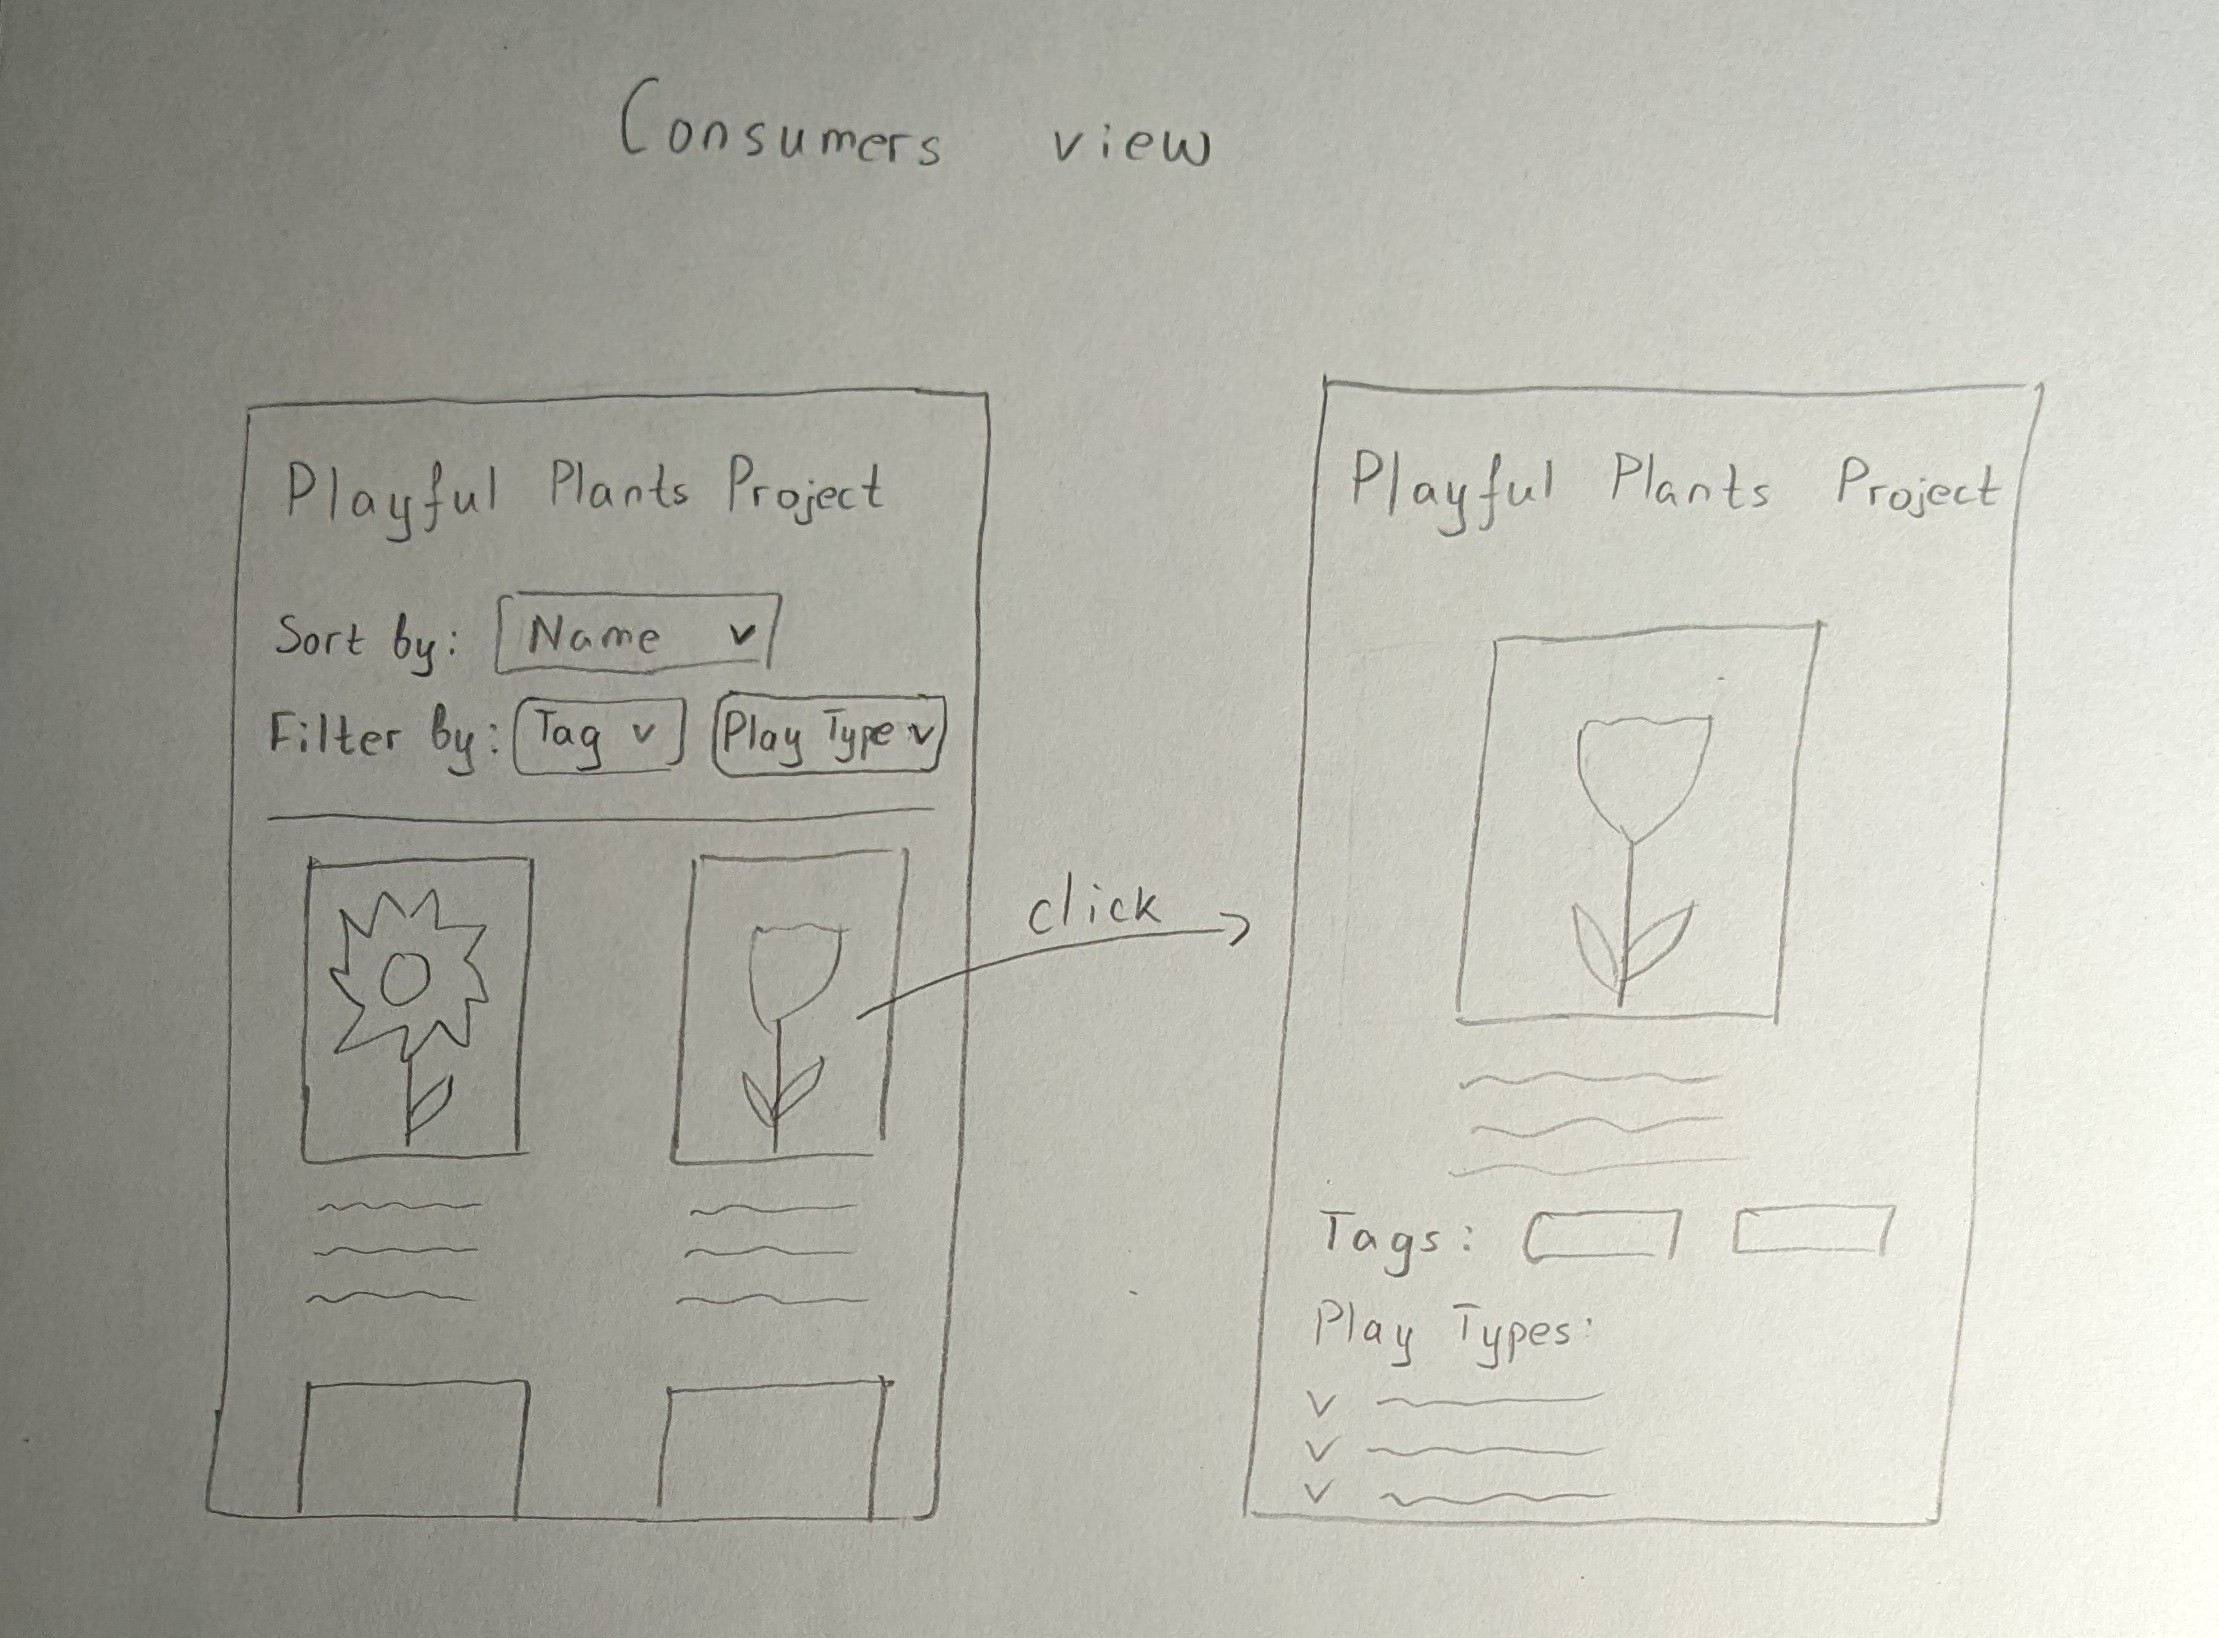 Consumers view
Playful Plants Project
Sort by: Name
Filter by: Tag Play Type
click
Playful Plants Project
Tags:
Play Types: